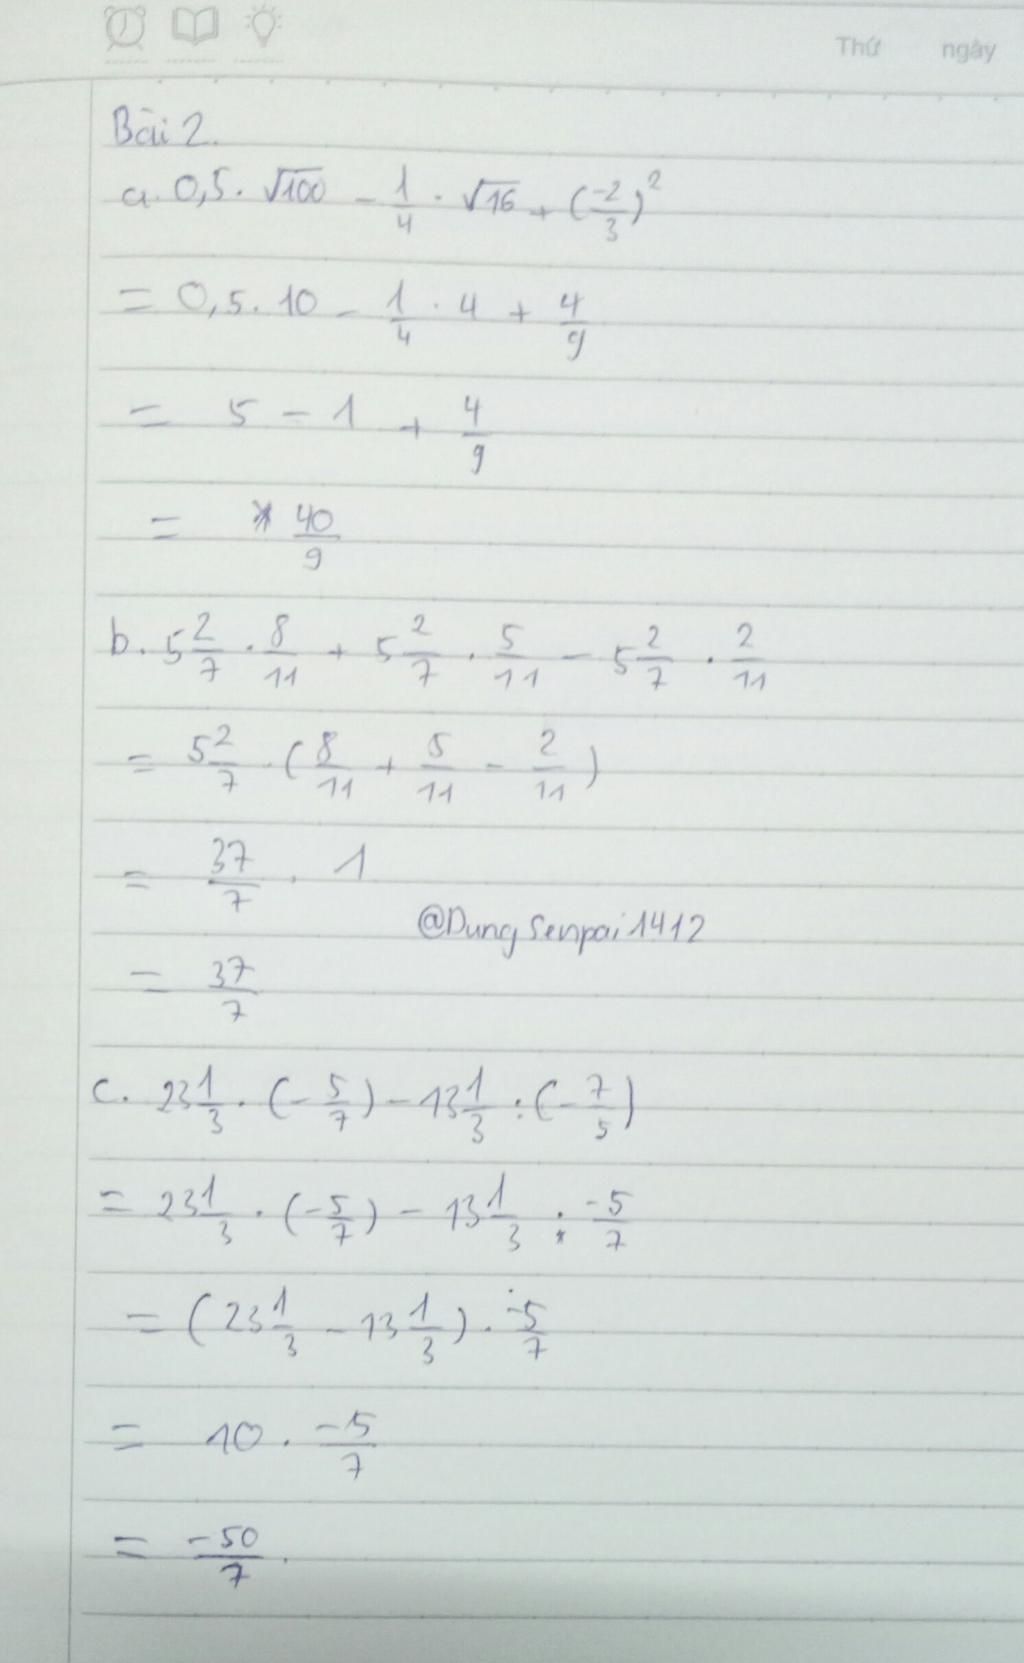 Thứ ngày
Bài 2.
a. 0,5 . √100 - 1/4 . √16 + (-2/3)²
= 0,5 . 10 - 1/4 . 4 + 4/9
= 5 - 1 + 4/9
= 40/9
b. 5 2/7 . 8/11 + 5 2/7 . 5/11 - 5 2/7 . 2/11
= 5 2/7 . (8/11 + 5/11 - 2/11)
= 37/7 . 1
@DungSenpai1412
= 37/7
c. 23 1/3 . (-5/7) - 13 1/3 : (-7/5)
= 23 1/3 . (-5/7) - 13 1/3 . -5/7
= (23 1/3 - 13 1/3) . -5/7
= 10 . -5/7
= -50/7.